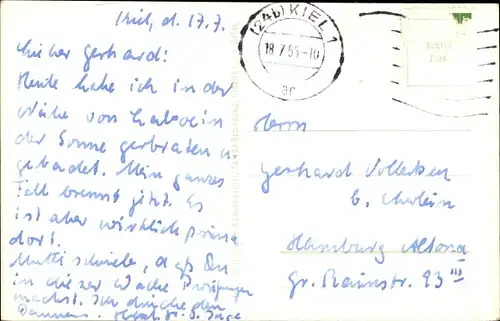 Kiel, d. 17.7.
Lieber Gerhard!
Heute habe ich in der
Nähe von Laboe in
der Sonne gebraten u.
gebadet. Mein ganzes
Fell brennt jetzt. Es
ist aber wirklich prima
dort.
Mutti schrieb, daß Du
in dieser Woche Prüfungen
machst. Ich drücke den
Daumen. Herzl. Gr. D. Inge
(24b) KIEL 1
18.7.55-10
Herrn
Gerhard
b.
Hamburg Altona
Gr. Rainstr. 93 III